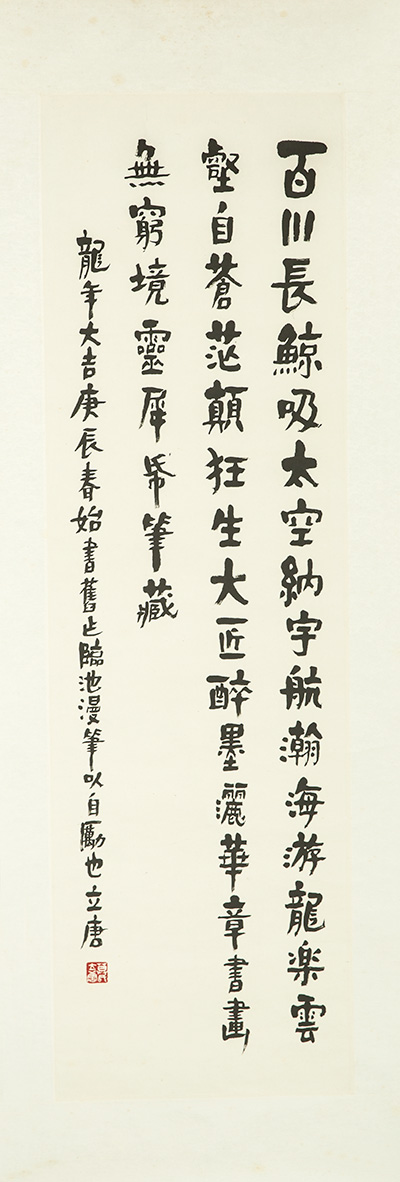 百川長鯨吸太空納宇航瀚海游龍楽雲
壑自蒼茫顛狂生大匠醉墨灑華章書畫
無窮境靈犀帋筆藏
龍年大吉庚辰春始書舊乍臨池漫筆以自勵也立唐